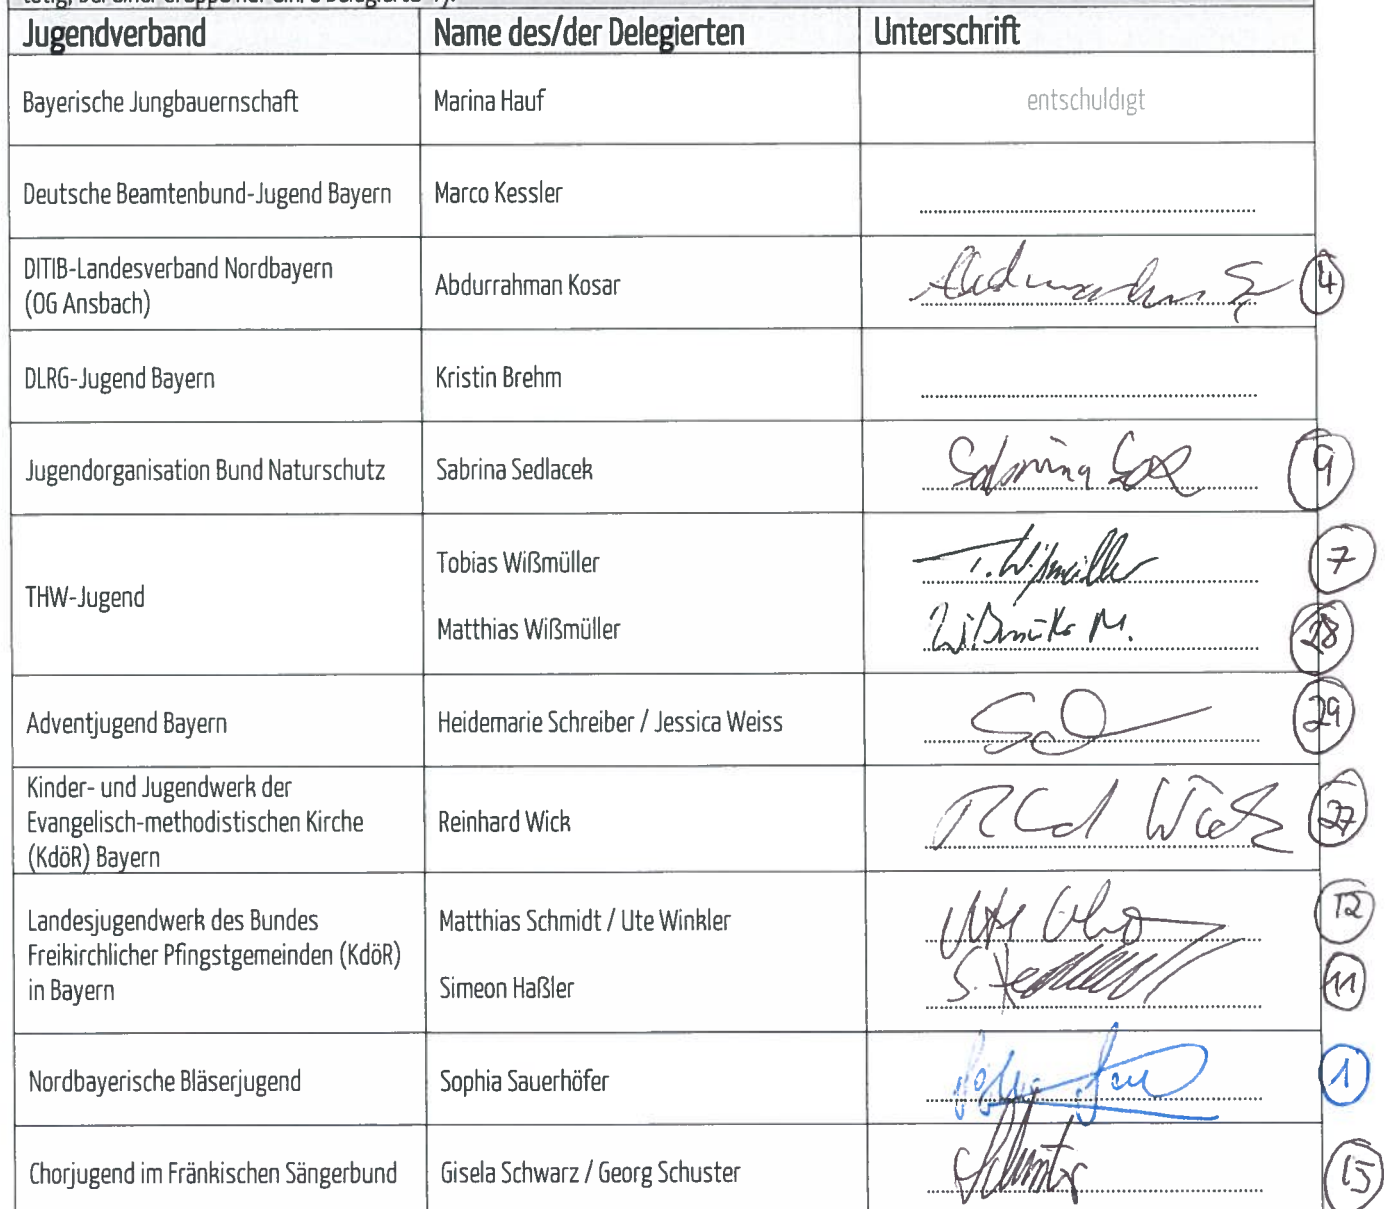 Jugendverband Name des/der Delegierten Unterschrift
Bayerische Jungbauernschaft Marina Hauf entschuldigt
Deutsche Beamtenbund-Jugend Bayern Marco Kessler
DITIB-Landesverband Nordbayern
(OG Ansbach) Abdurrahman Kosar 4
DLRG-Jugend Bayern Kristin Brehm
Jugendorganisation Bund Naturschutz Sabrina Sedlacek Sabrina 9
THW-Jugend
Tobias Wißmüller T. Wißmüller 7
Matthias Wißmüller Wißmüller M. 28
Adventjugend Bayern Heidemarie Schreiber / Jessica Weiss 29
Kinder- und Jugendwerk der
Evangelisch-methodistischen Kirche
(KdöR) Bayern Reinhard Wick Wick 27
Landesjugendwerk des Bundes
Freikirchlicher Pfingstgemeinden (KdöR)
in Bayern
Matthias Schmidt / Ute Winkler Ute 12
Simeon Haßler S. 11
Nordbayerische Bläserjugend Sophia Sauerhöfer 1
Chorjugend im Fränkischen Sängerbund Gisela Schwarz / Georg Schuster Schuster 15